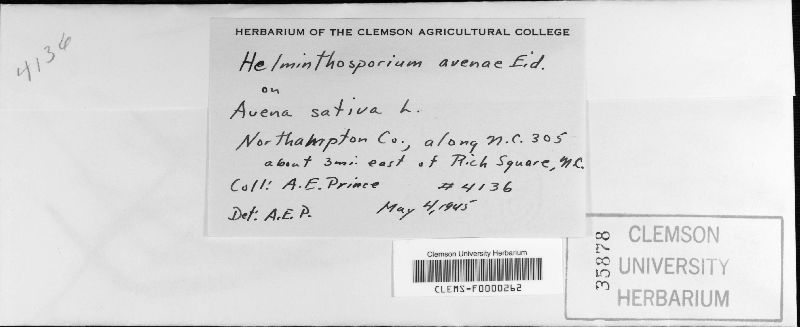 4136
HERBARIUM OF THE CLEMSON AGRICULTURAL COLLEGE
Helminthosporium avenae Eid.
on
Avena sativa L.
Northampton Co., along N.C. 305
about 3 mi. east of Rich Square, N.C.
Coll: A.E. Prince #4136
Det: A.E.P. May 4, 1945
Clemson University Herbarium
CLEMS-F0000262
35878
CLEMSON
UNIVERSITY
HERBARIUM